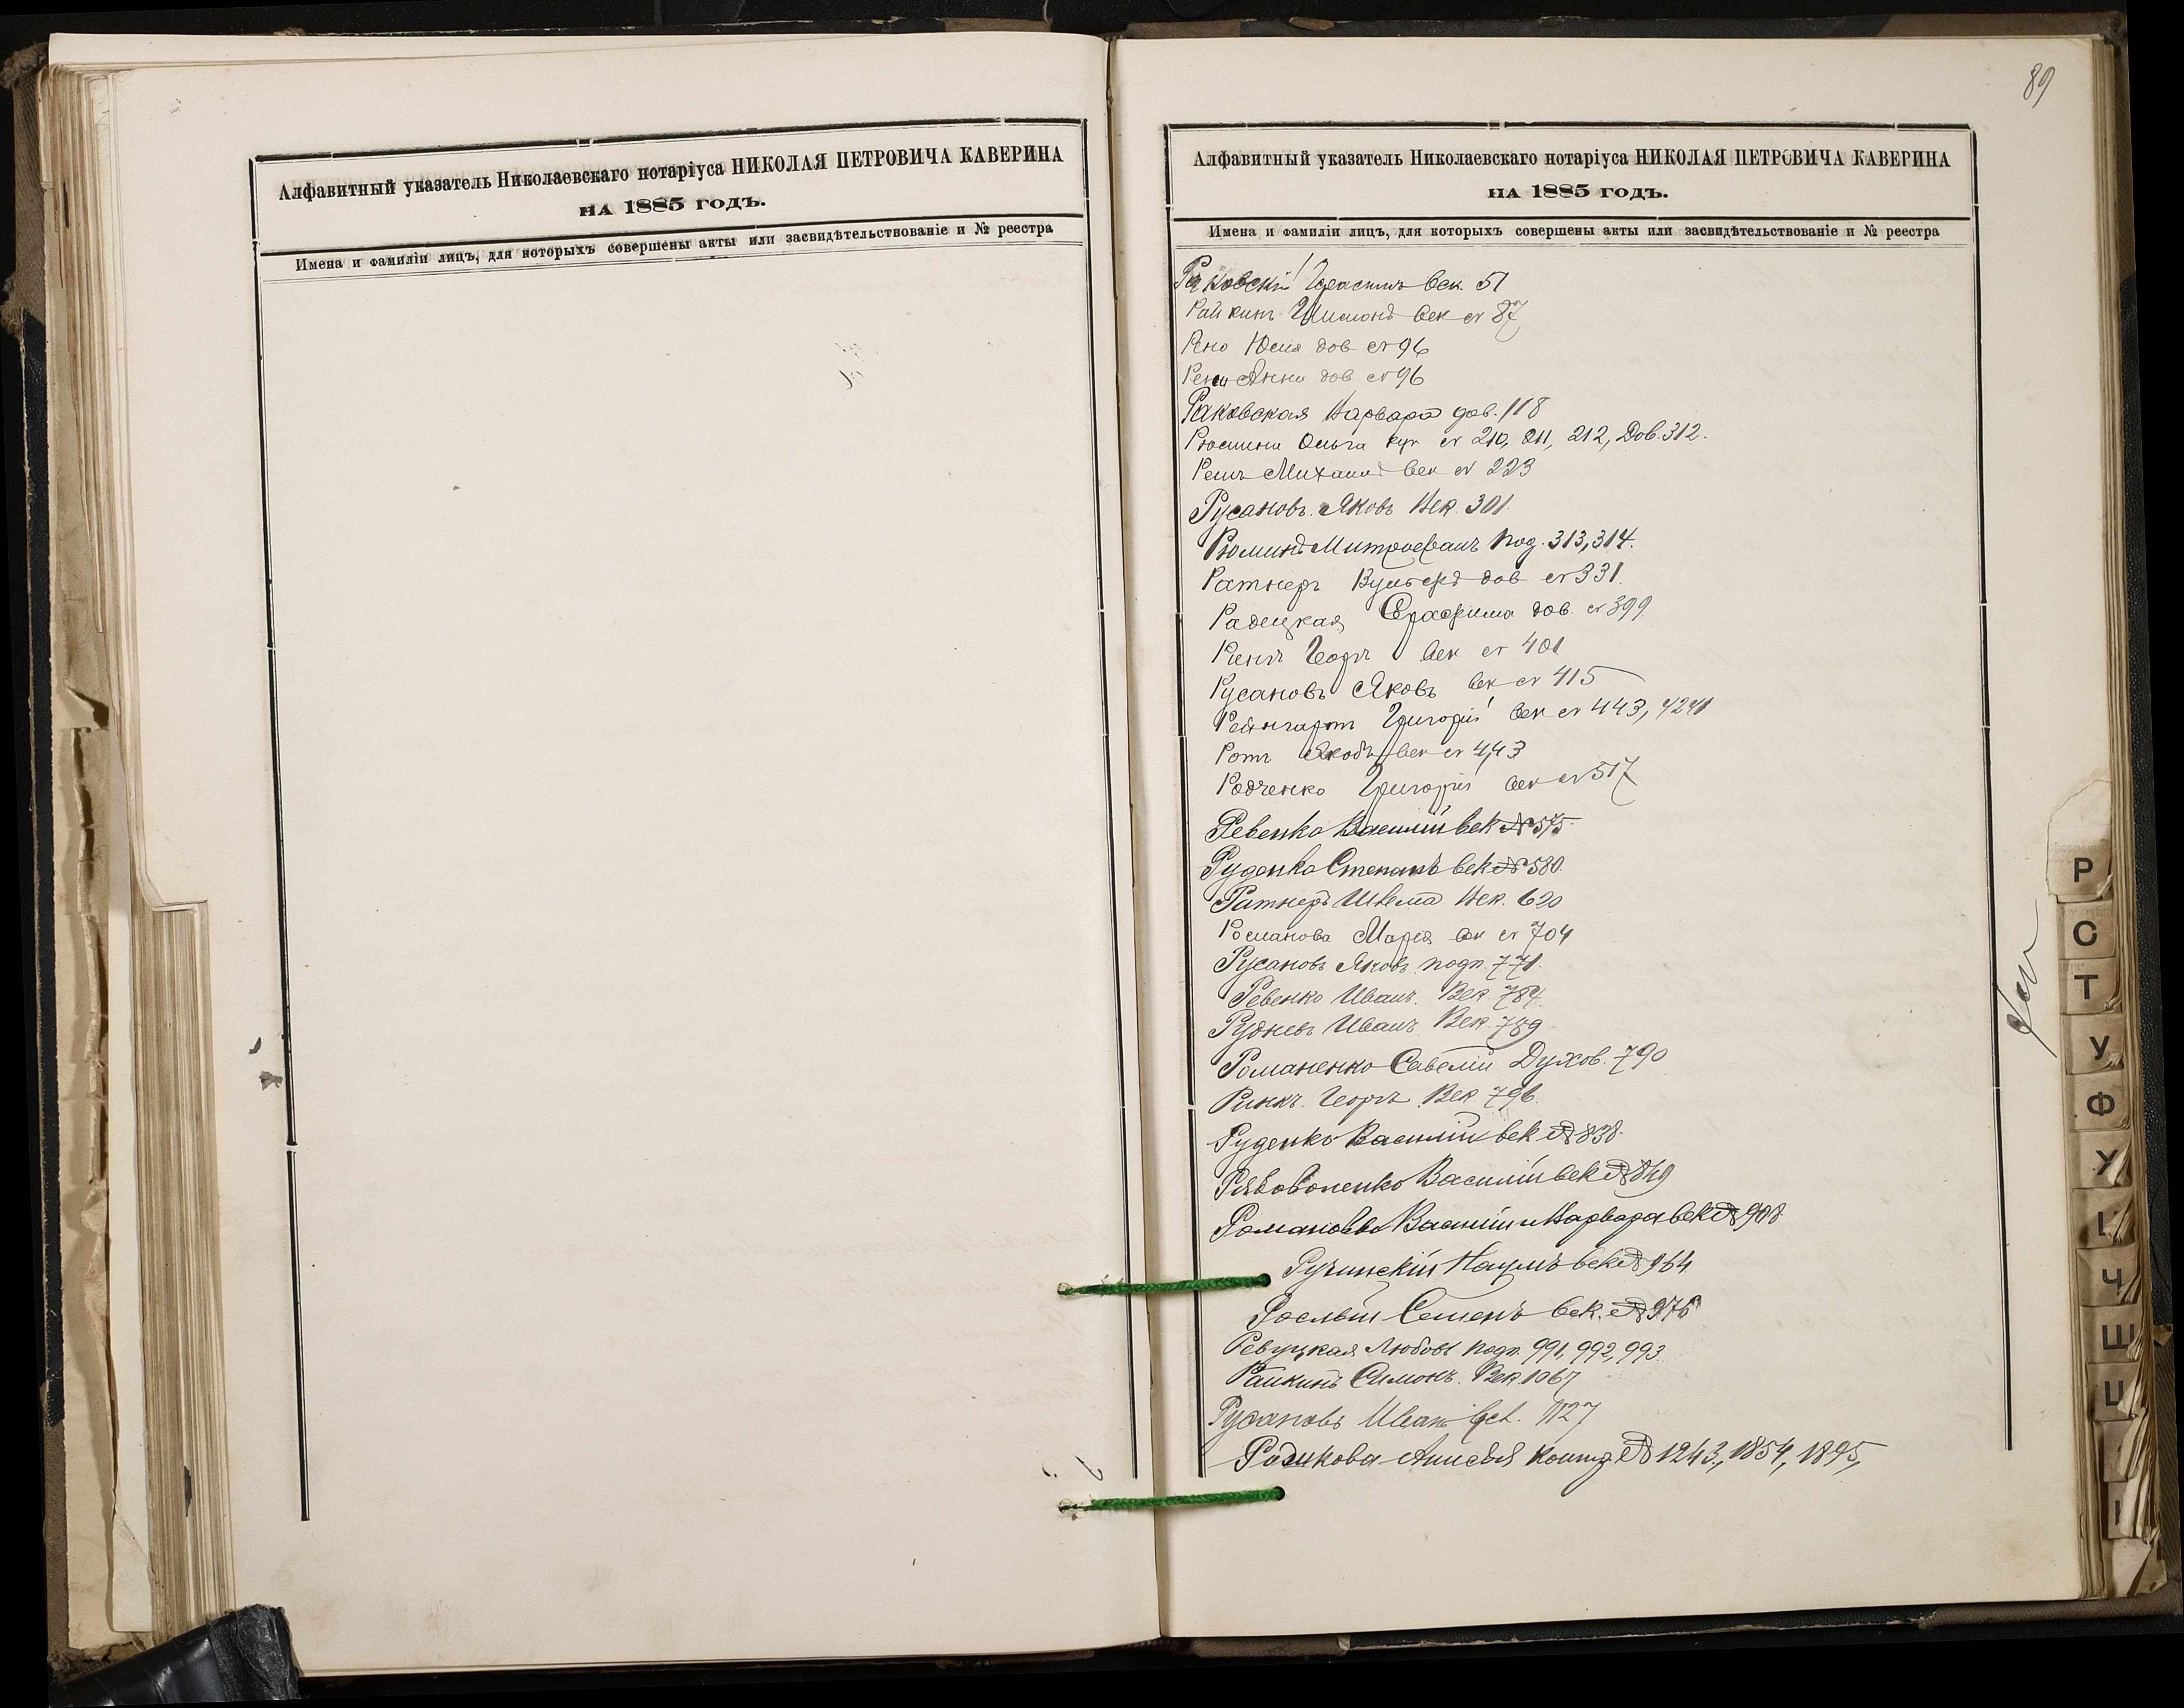 Алфавитный указатель Николаевскаго нотаріуса НИКОЛАЯ ПЕТРОВИЧА КАВЕРИНА
НА 1885 ГОДЪ.
Имена и фамиліи лицъ, для которыхъ совершены акты или засвидѣтельствованіе и № реестра
89
Алфавитный указатель Николаевскаго нотаріуса НИКОЛАЯ ПЕТРОВИЧА КАВЕРИНА
НА 1885 ГОДЪ.
Имена и фамиліи лицъ, для которыхъ совершены акты или засвидѣтельствованіе и № реестра
Раковскій Век. 51
Райкинъ Шимонъ Век № 87
Рено Юлія дов № 96
Рено Анна дов № 96
Раковская Варвара дов. 118
Рюмина Ольга куп № 210, 211, 212, Дов. 312.
Решъ Михаилъ Век № 223
Русановъ Яковъ Век. 301.
Рюминъ Митрофанъ под. 313, 314.
Ратнеръ Вульфъ дов № 331.
Радецкая Ерафима дов. № 399
Ринкъ Георгъ Век № 401
Русановъ Яковъ Век № 415
Рейнгартъ Григорій Век № 443, 4241
Ротъ Якобъ Век № 443
Родченко Григорій Век № 517
Ревенко Василій век № 575
Руденко Степанъ век № 580.
Ратнеръ Шлема Век. 620
Романова Марія Век № 704
Русановъ Яковъ подп. 771.
Ревенко Иванъ. Век. 784.
Рудневъ Иванъ Век. 789
Романенко Савелій Духов. 790
Ринкъ. Георгъ. Век 796.
Руденко Василій век № 838.
Рябоволенко Василій век № 849
Романовы Василій и Варвара век № 908
Ручинскій Наумъ век № 964
Рослый Семенъ Век. № 976
Ревуцкая Любовь подп. 991, 992, 993.
Райкинъ Симонъ. Век. 1067
Русановъ Иванъ Век. 1127
Родикова Анисья контр № 1243, 1854, 1895,
Р
С
Т
У
Ф
Ч
Ш